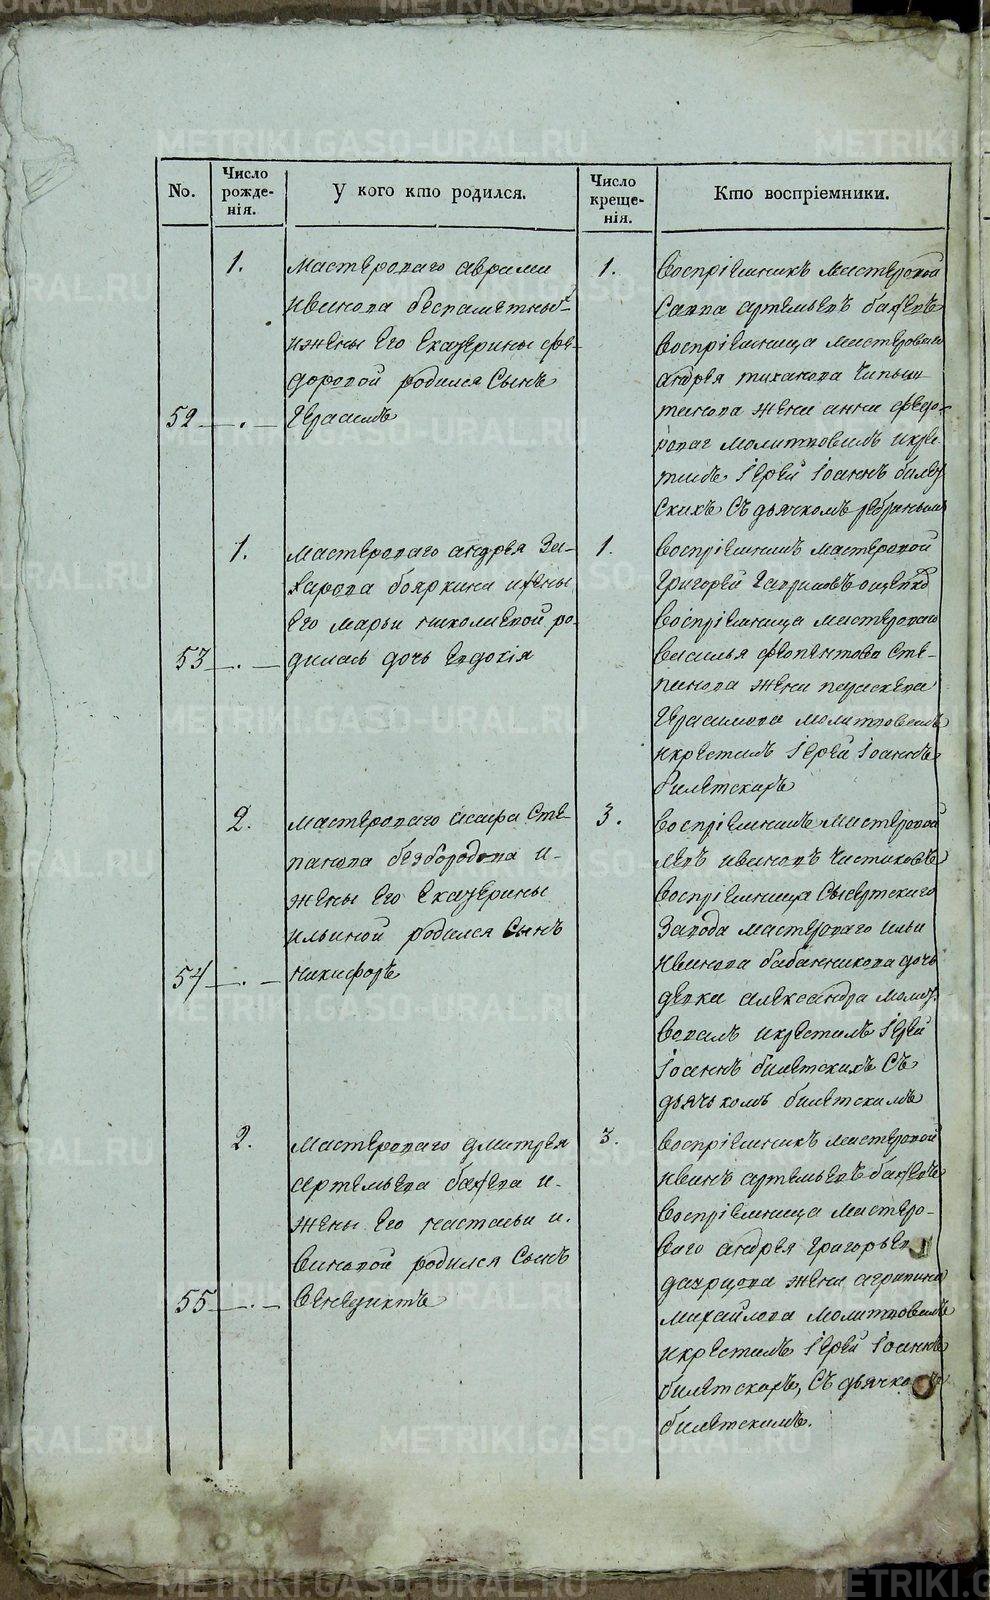 No.
Число рожде-нія.
У кого кто родился.
Число креще-нія.
Кто воспріемники.
52
1.
мастероваго аврама
иванова беспаметных
ижены его екатерины фе-
доровой родился Сынъ
Герасимъ
1.
воспріемникъ мастеровой
Савва артемьевъ
воспріемница мастероваго
андрея
жена анна федо-
молитвовалъ икре-
тилъ Іерей Іоаннъ
Съ дьячкомъ
53
1.
мастероваго андрея За-
харова бояркина ижены
его марьи николаевой ро-
дилась дочь евдокія
1.
воспріемникъ мастеровой
Григорей Гавриловъ
воспріемница мастероваго
василья Сте-
панова жена параскева
Герасимова молитвовалъ
икрестилъ Іерей Іоаннъ
билетскихъ
54
2.
мастероваго исафа Сте-
панова безбородова и-
жены его екатерины
ильиной родился Сынъ
никифоръ
3.
воспріемникъ мастеровой
левъ ивановъ чистяковъ
воспріемница Сысертскаго
Завода мастероваго ильи
иванова бабанникова дочь
девка александра молит-
вовалъ икрестилъ Іерей
Іоаннъ билетскихъ Съ
дьячькомъ билетскимъ
55
2.
мастероваго дмитрея
артемьева и-
жены его настасьи и-
вановой родился Сынъ
венедиктъ
3.
воспріемникъ мастеровой
иванъ артемьевъ
воспріемница мастеро-
ваго андрея Григорьева
жена агрипина
михайлова молитвовалъ
икрестилъ Іерей Іоаннъ
билетскихъ, Съ дьячко
билетскимъ.
METRIKI.GASO-URAL.RU